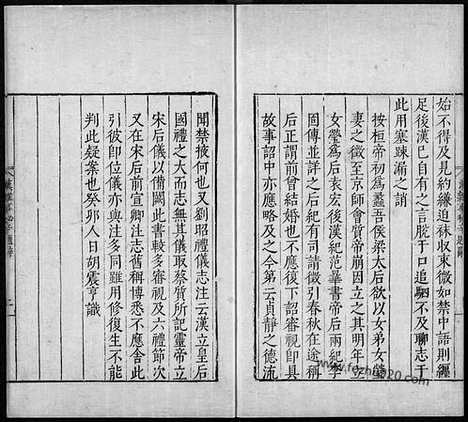 始不得及見約縑迫袜收束微如禁中語則纏
足後漢已自有之言脫于口追駟不及聊志于
此用塞踈漏之誚
按桓帝初為蠡吾侯梁太后欲以女弟女瑩
妻之徵至京師會質帝崩因立之其明年立
女瑩為后袁宏後漢紀范曄書帝后兩紀李
固傳並詳之后紀有司請徵引春秋在途稱
后正為前曾結婚也不應復下詔審視即具
故事詔中亦應略及之今第云貞靜之德流
聞禁掖何也又劉昭禮儀志注云漢立皇后
國禮之大而志無其儀取蔡質所記靈帝立
宋后儀以備闕此書較多審視及六禮節次
又在宋后前宣卿注志舊稱博悉不應舍此
引彼即位儀亦與注多同雖用修復生不能
判此疑案也癸卯人日胡震亨識